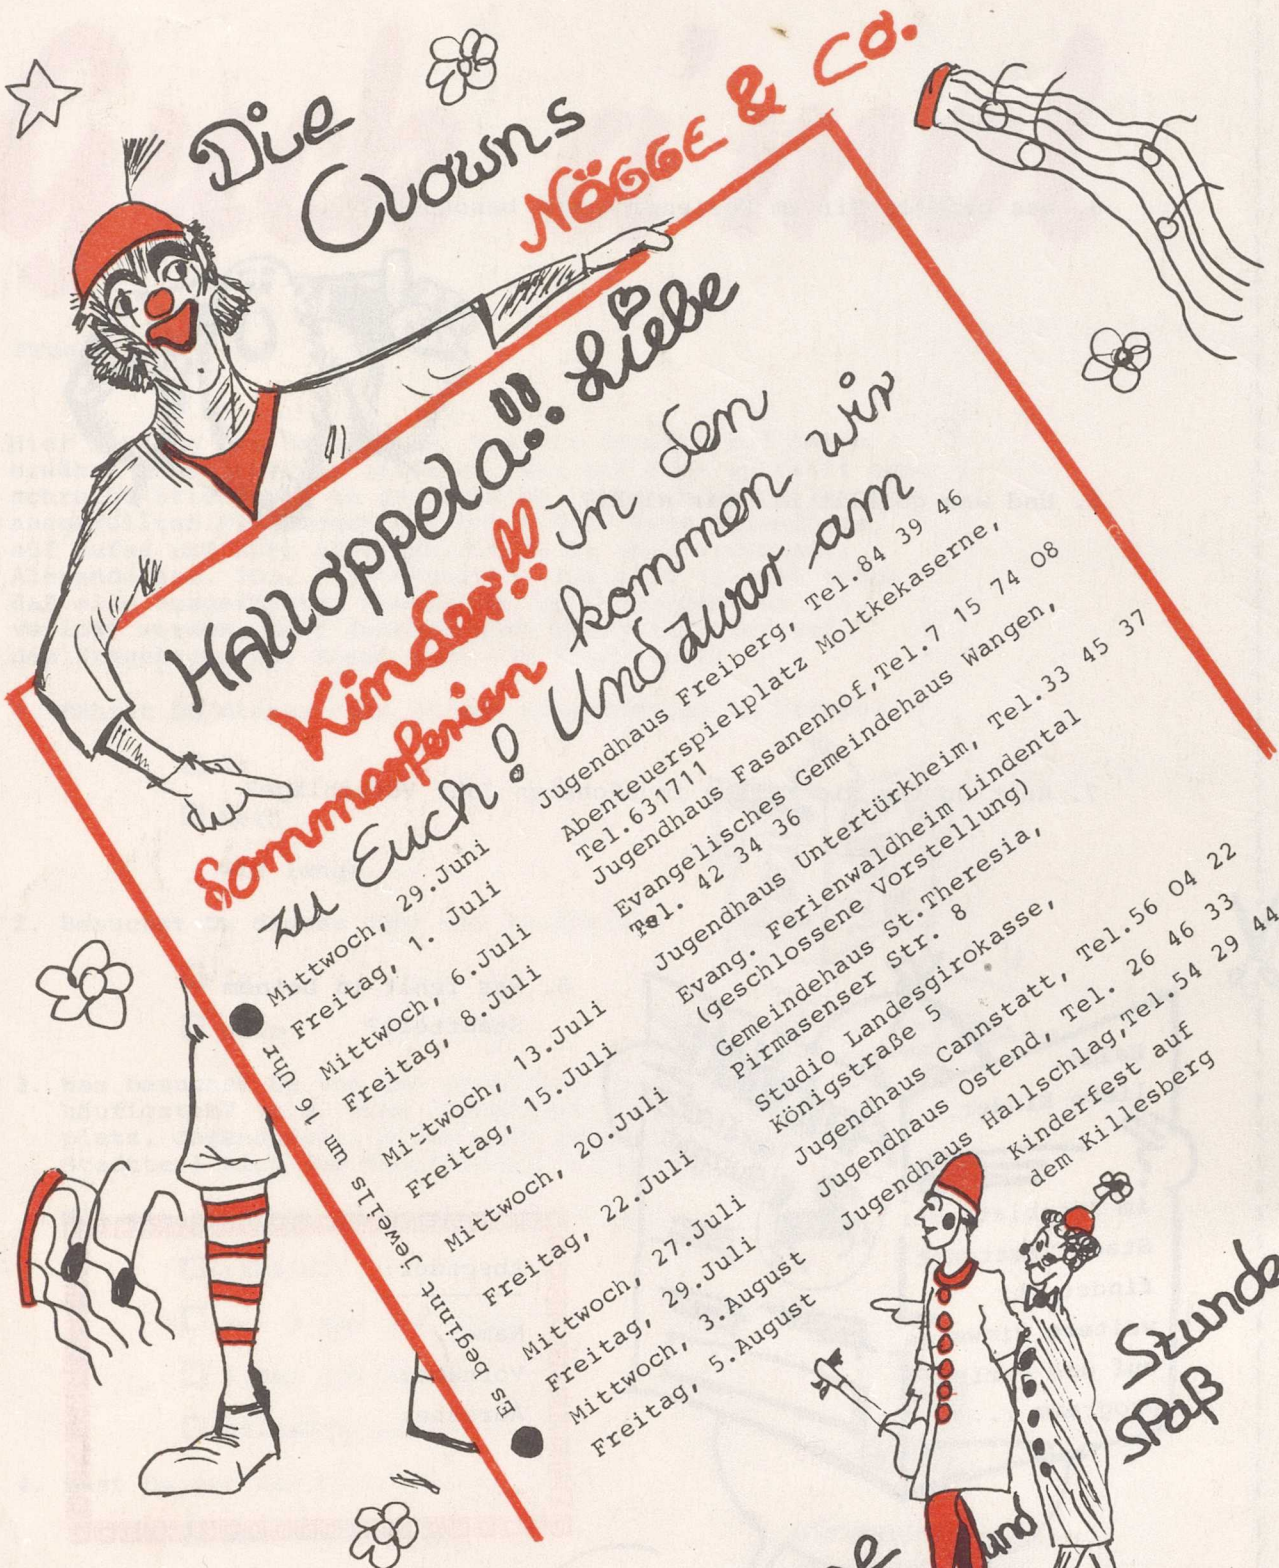 Die
Clowns
NÖGGE & CO.
HALLOPPELA!! Liebe
Kinder!! In den
Sommerferien kommen wir
zu Euch! Und zwar am
Mittwoch, 29.Juni Jugendhaus Freiberg, Tel.84 39 46
Freitag, 1. Juli Abenteuerspielplatz Moltkekaserne,
Tel.631711
Mittwoch, 6.Juli Jugendhaus Fasanenhof,Tel.7 15 74 08
Freitag, 8.Juli Evangelisches Gemeindehaus Wangen,
Tel. 42 34 36
Mittwoch, 13.Juli Jugendhaus Untertürkheim, Tel.33 45 37
Freitag, 15.Juli Evang. Ferienwaldheim Lindental
(geschlossene Vorstellung)
Mittwoch, 20.Juli Gemeindehaus St.Theresia,
Pirmasenser Str. 8
Freitag, 22.Juli Studio Landesgirokasse,
Königstraße 5
Mittwoch, 27.Juli Jugendhaus Cannstatt, Tel.56 04 22
Freitag, 29.Juli Jugendhaus Ostend, Tel. 26 46 33
Mittwoch, 3.August Jugendhaus Hallschlag,Tel.54 29 44
Freitag, 5.August Kinderfest auf
dem Killesberg
Es beginnt jeweils um 16 Uhr
Stunde
SPaß
und